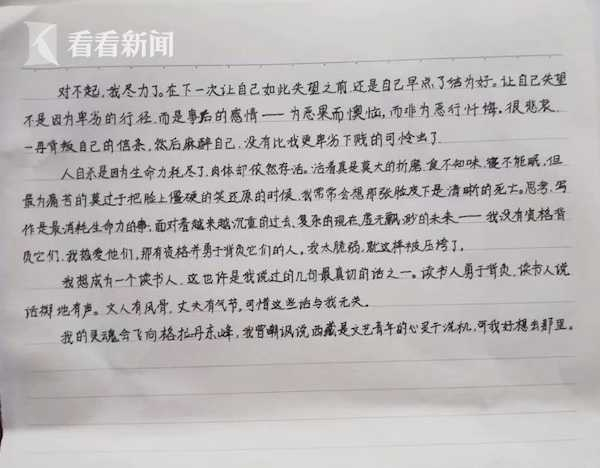 看看新闻
对不起,我尽力了。在下一次让自己如此失望之前,还是自己早点了结为好。让自己失望
不是因为卑劣的行径,而是事后的感情——为恶果而懊恼,而非为恶行忏悔。很悲哀,
一再背叛自己的信条,然后麻醉自己,没有比我更卑劣下贱的可怜虫了。
人自杀是因为生命力耗尽了,肉体却依然存活。活着真是莫大的折磨,食不知味,寝不能眠,但
最为痛苦的莫过于把脸上僵硬的笑还原的时候,我常常会想那张脸皮下是清晰的死亡。思考、写
作是最消耗生命力的事,面对着越来越沉重的过去、复杂的现在、虚无飘渺的未来——我没有资格背
负它们,我热爱他们,那有资格并勇于背负它们的人,我太脆弱,就这样被压垮了。
我想成为一个读书人,这也许是我说过的几句最真切的话之一。读书人勇于背负,读书人说
话掷地有声。文人有风骨,丈夫有气节,可惜这些话与我无关。
我的灵魂会飞向格拉丹东峰,我曾嘲讽说西藏是文艺青年的心灵干洗机,可我好想去那里。